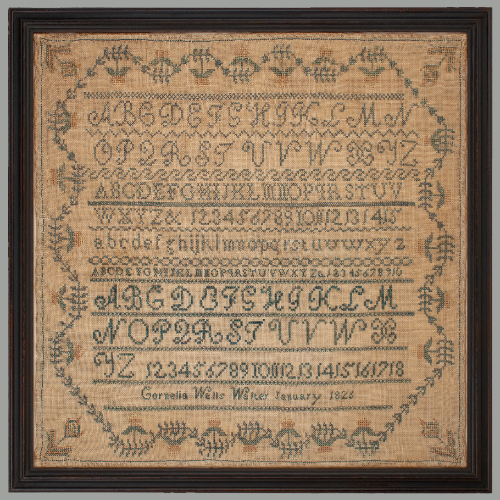 ABCDEFGHIJKLMN
OPQRSTUVWXYZ
ABCDEFGHIJKLMNOPQRSTUV
WXYZ& 123456789101112131415
abcdefghijklmnopqrstuvwxyz
ABCDEFGHIJKLMNOPQRSTUVWXYZ& 12345678910
ABCDEFGHIJKLM
NOPQRSTUVWX
YZ 123456789101112131415161718
Cornelia Wells January 182